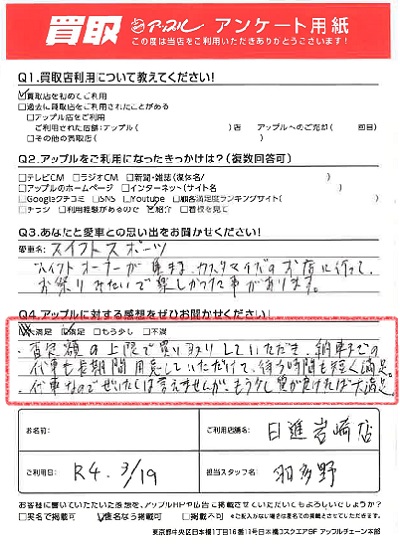 買取 アップル アンケート用紙
この度は当店をご利用いただきありがとうございます!
Q1.買取店利用について教えてください!
☑買取店を初めてご利用
□過去に買取店をご利用されたことがある
□アップル店をご利用
ご利用された店舗:アップル( )店 アップルへのご売却( 回目)
□その他の買取店( )
Q2.アップルをご利用になったきっかけは?(複数回答可)
□テレビCM □ラジオCM □新聞・雑誌(媒体名/ )
□アップルのホームページ □インターネット(サイト名 )
□Googleクチコミ □SNS □Youtube □顧客満足度ランキングサイト( )
□チラシ □利用経験があるので ☑紹介 □看板を見て
Q3.あなたと愛車との思い出をお聞かせください!
愛車名:スイフトスポーツ
スイフトオーナーが集まる、カスタマイズのお店に行って、
お祭りみたいで楽しかった事があります。
Q4.アップルに対する感想をぜひお聞かせください!
満足 ☑満足 □もう少し □不満
・査定額の上限で買い取りしていただき、納車までの
代車も長期間用意していただけて、待つ時間も短く満足。
・代車なのでぜいたくは言えませんが、もう少し質が良ければ大満足。
お名前:
ご利用店舗名: 日進岩崎店
ご利用日: R4. 3/19
担当スタッフ名: 羽多野
お客様に書いていただいた感想を、アップルHPや広告に掲載させていただいてもよろしいでしょうか?
□実名で掲載可 ☑匿名なら掲載可 □掲載不可 ※ご記入がない場合は匿名での掲載とさせていただきます。
東京都中央区日本橋1丁目16番11号日本橋コスクエア9F アップルチェーン本部